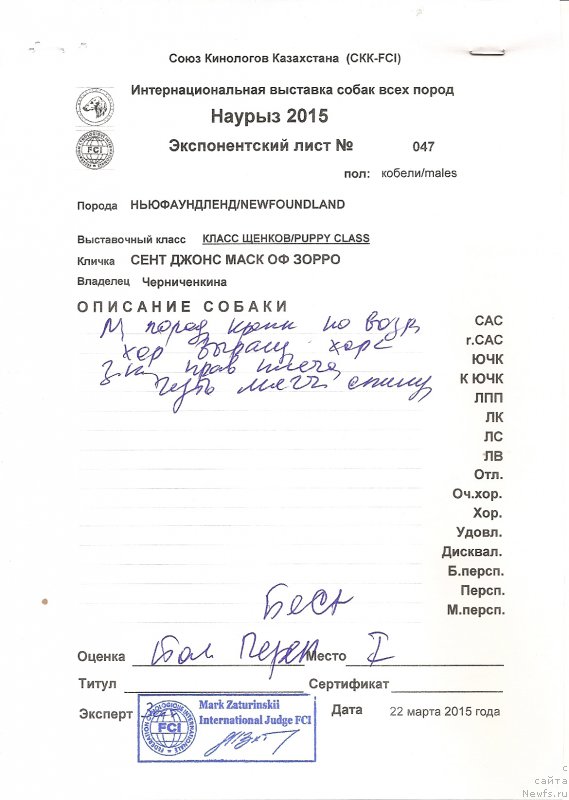 Союз Кинологов Казахстана (СКК-FCI)
Интернациональная выставка собак всех пород
Наурыз 2015
Экспонентский лист № 047
пол: кобели/males
Порода НЬЮФАУНДЛЕНД/NEWFOUNDLAND
Выставочный класс КЛАСС ЩЕНКОВ/PUPPY CLASS
Кличка СЕНТ ДЖОНС МАСК ОФ ЗОРРО
Владелец Черниченкина
ОПИСАНИЕ СОБАКИ
пород по возр
хор выращ хор
прав
чуть спину
САС
г.САС
ЮЧК
К ЮЧК
ЛПП
ЛК
ЛС
ЛВ
Отл.
Оч.хор.
Хор.
Удовл.
Дисквал.
Б.персп.
Персп.
М.персп.
Бест
Оценка Бол Персп Место I
Титул Сертификат
Эксперт Mark Zaturinskii
International Judge FCI
FCI
Дата 22 марта 2015 года
с
сайта
Newfs.ru